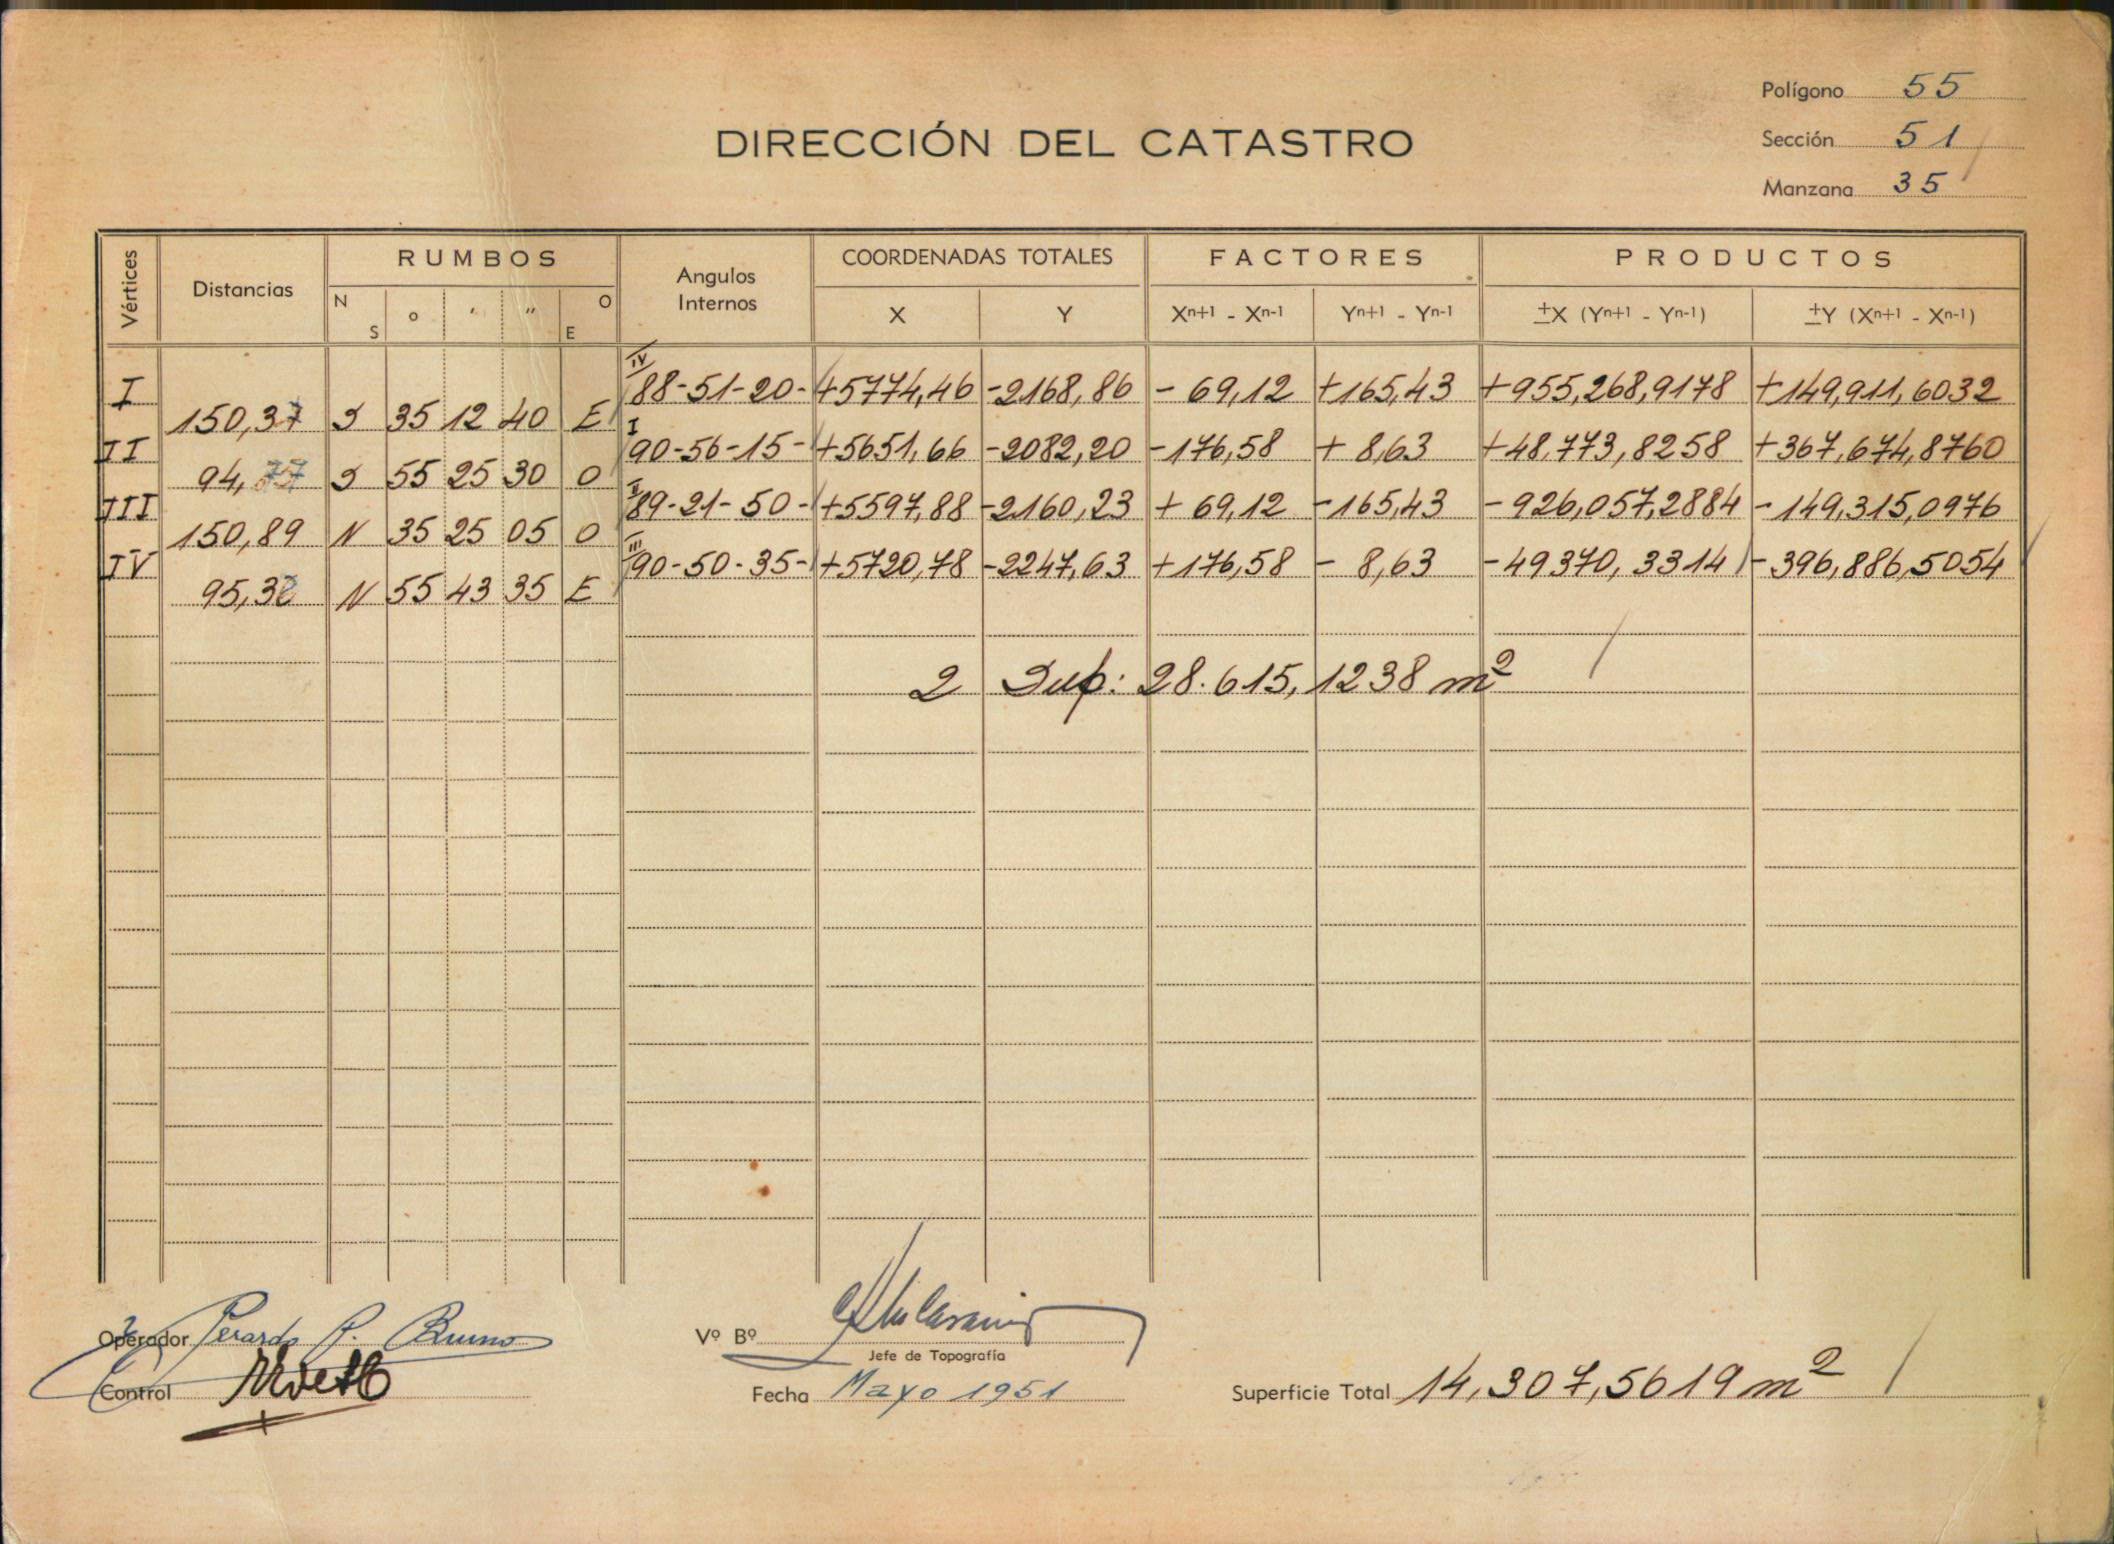 Polígono 55
DIRECCIÓN DEL CATASTRO
Sección 51
Manzana 35
Vértices Distancias RUMBOS Angulos Internos COORDENADAS TOTALES FACTORES PRODUCTOS
N S o ' " O E X Y Xn+1 - Xn-1 Yn+1 - Yn-1 ±X (Yn+1 - Yn-1) ±Y (Xn+1 - Xn-1)
IV
I 88-51-20- +5774,46 -2168,86 - 69,12 +165,43 +955,268,9178 +149,911,6032
150,37 S 35 12 40 E I
II 90-56-15- +5651,66 -2082,20 -176,58 + 8,63 +48.773,8258 +367,674,8760
94,77 S 55 25 30 O II
III 89-21-50- +5597,88 -2160,23 + 69,12 -165,43 -926,057,2884 -149,315,0976
150,89 N 35 25 05 O III
IV 90-50-35- +5720,78 -2247,63 +176,58 - 8,63 -49370,3314 -396,886,5054
95,32 N 55 43 35 E
2 Sup: 28.615,1238 m2
Operador Gerardo P. Bruno Vº Bº
Jefe de Topografía
Control Fecha Mayo 1951 Superficie Total 14,307,5619 m2